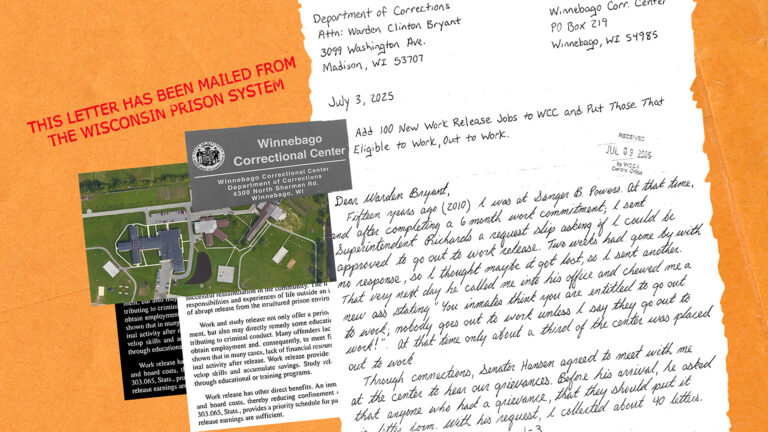 THIS LETTER HAS BEEN MAILED FROM
THE WISCONSIN PRISON SYSTEM
Winnebago
Correctional Center
Winnebago Correctional Center
Department of Corrections
4300 North Sherman Rd.
Winnebago, WI
responsibilities and experiences of life outside an i
of abrupt release from the structured prison enviro
Work and study release not only offer a period
ment, but also may directly remedy some educatio
tributing to criminal conduct. Many offenders lac
obtain employment and, consequently, to meet fi
shown that in many cases, lack of financial resour
inal activity after release. Work release provides
velop skills and accumulate savings. Study rel
through educational or training programs.
Work release has other direct benefits. An inm
and board costs, thereby reducing confinement
303.065, Stats., provides a priority schedule for pa
release earnings are sufficient.
Department of Corrections
Attn: Warden Clinton Bryant
3099 Washington Ave.
Madison, WI 53707
Winnebago Corr. Center
PO Box 219
Winnebago, WI 54985
July 3, 2025
Add 100 New Work Release Jobs to WCC and Put Those That
Eligible to Work, Out to Work.
RECEIVED
JUL 09 2025
by WCCS
Central Office
Dear Warden Bryant,
Fifteen years ago (2010) I was at Sanger B. Powers. At that time,
and after completing a 6 month work commitment, I sent
Superintendent Richards a request slip asking if I could be
approved to go out to work release. Two weeks had gone by with
no response, so I thought maybe it got lost, so I sent another.
That very next day he called me into his office and chewed me a
new ass stating "You inmates think you are entitled to go out
to work, nobody goes out to work unless I say they go out to
work!". At that time only about a third of the center was placed
out to work.
Through connections, Senator Hansen agreed to meet with me
at the center to hear our grievances. Before his arrival, he asked
that anyone who had a grievance, that they should put it
in letter form. With his request, I collected about 40 letters.
1-3